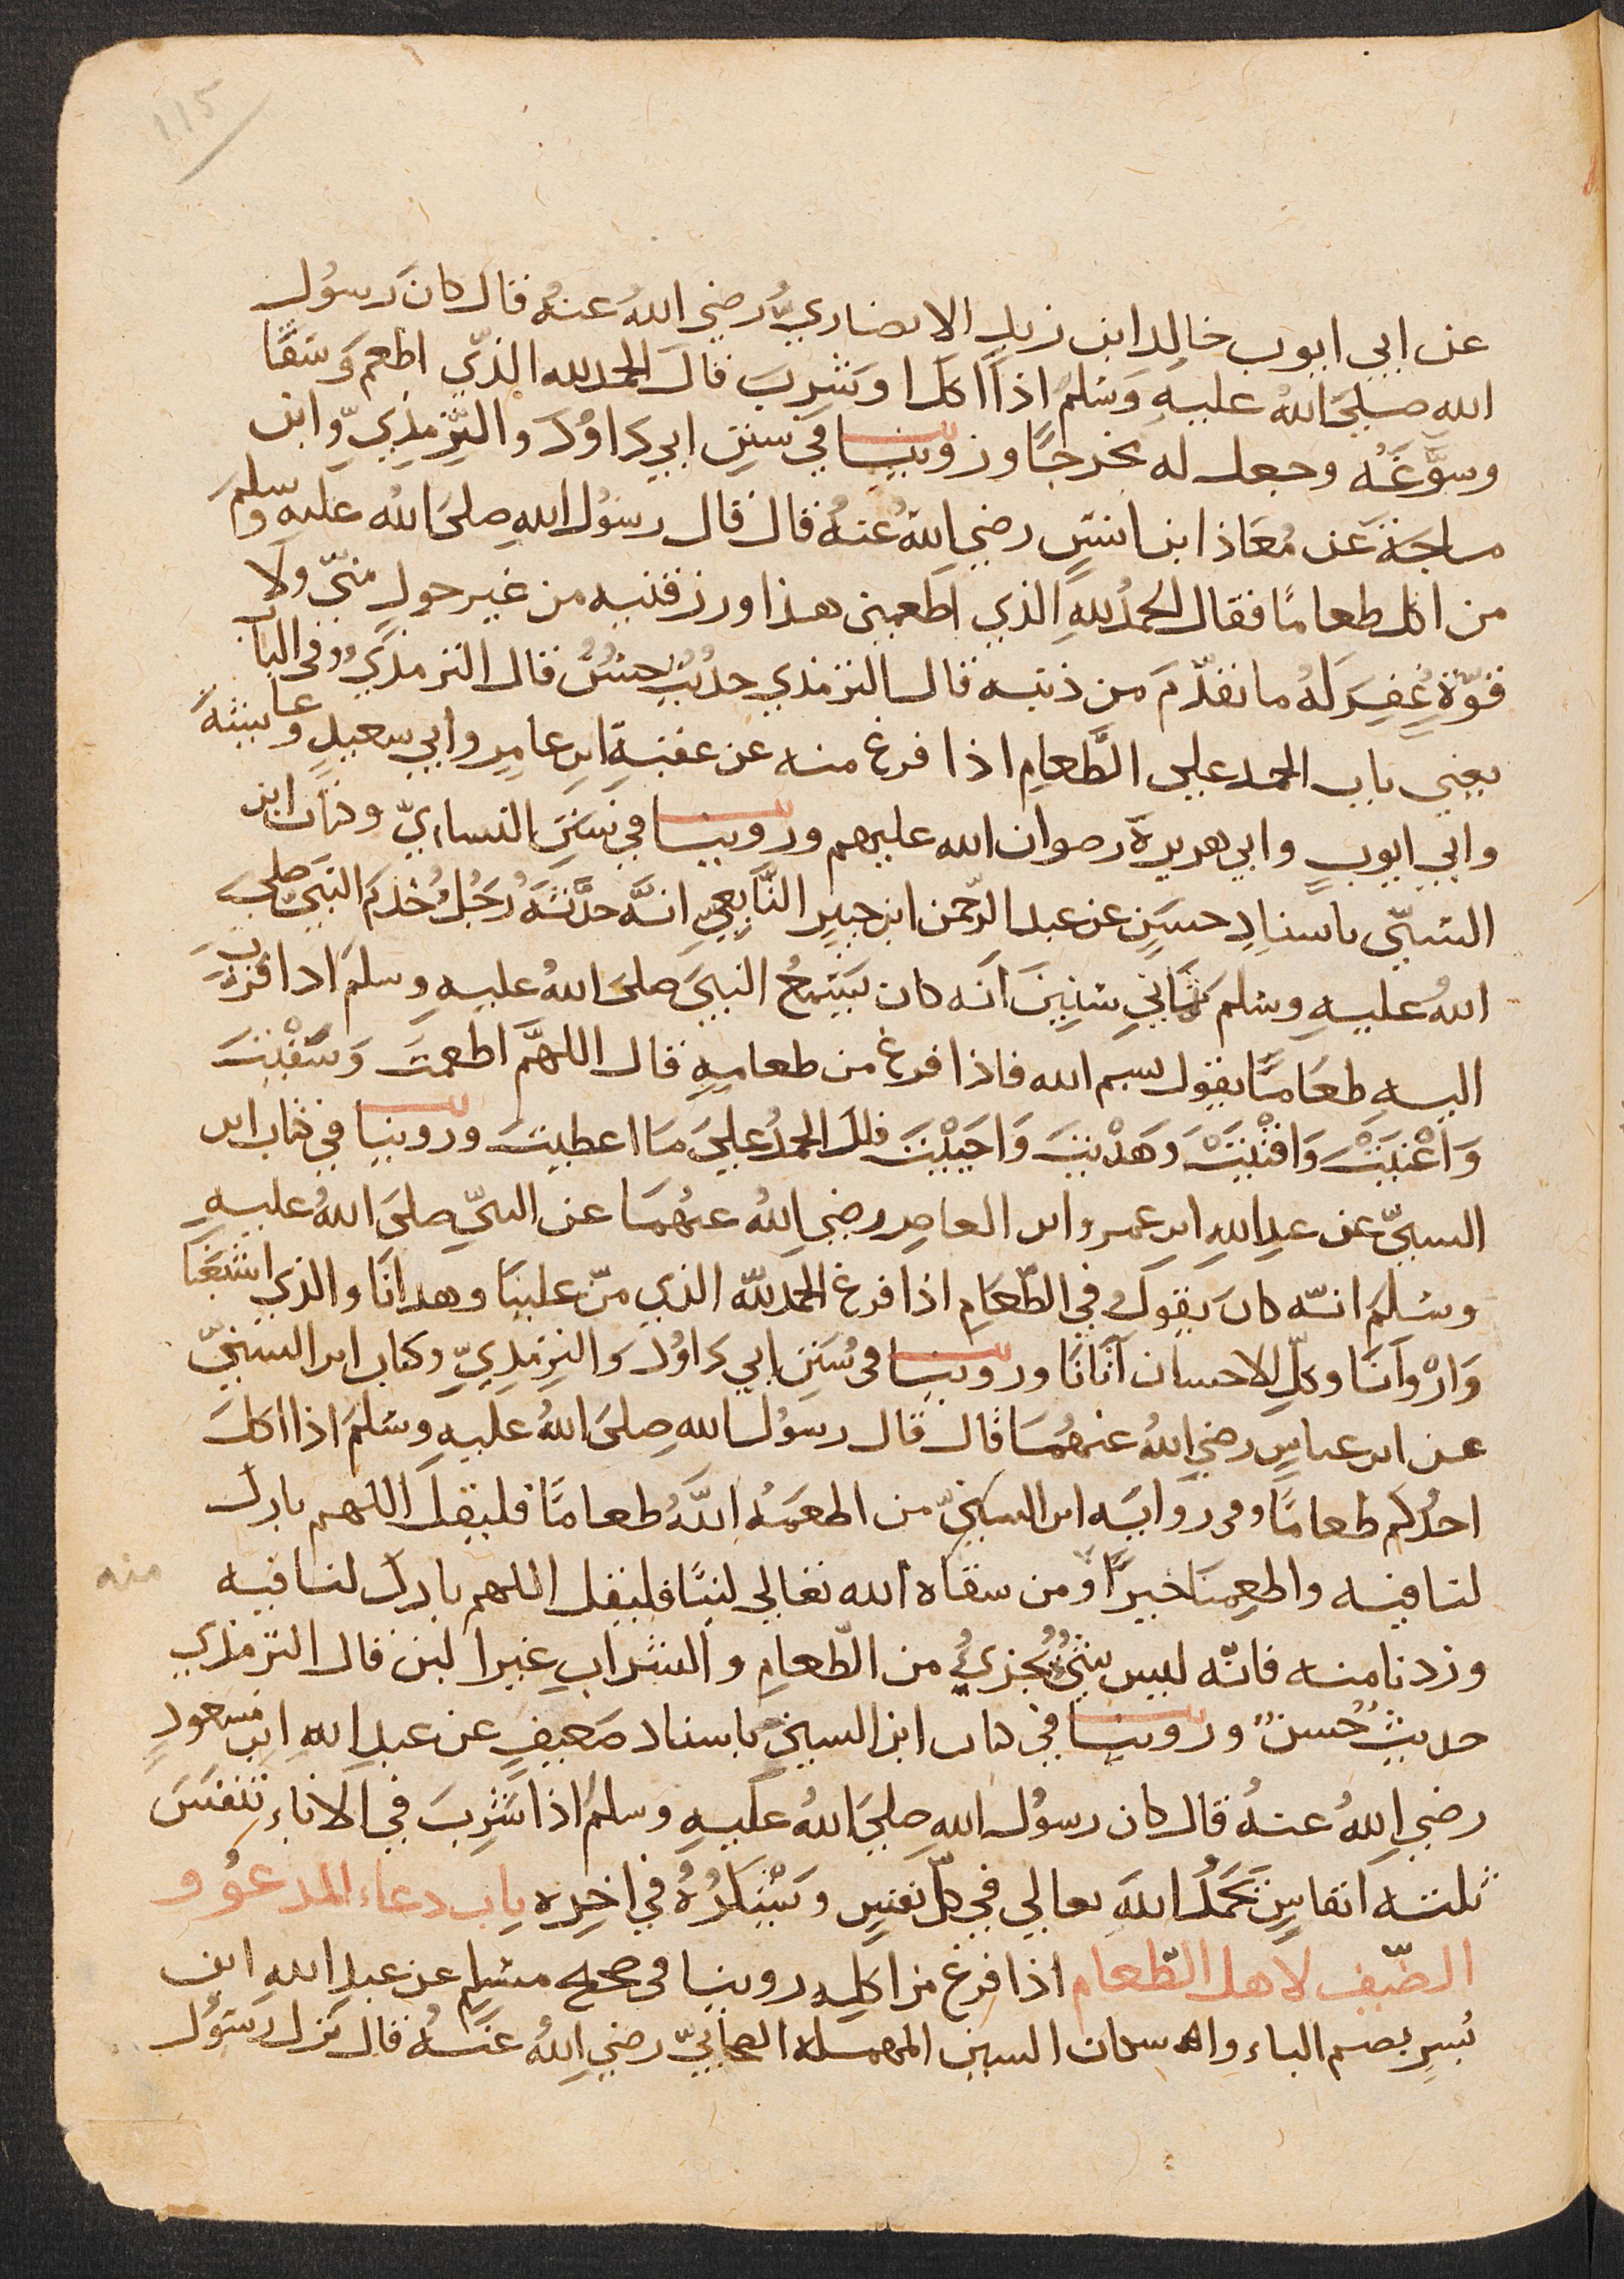 115
عن ابي ايوب خالد ابن زيد الانصاريّ رضي اللهُ عنهُ قال كانَ رسُول
الله صلىَ اللهُ عليهِ وَسَلمُ اذا اكلَ ا وشربَ قالَ الحمد لله الذّي اطعم وَسَقَا
وسوَّغهُ وجعل له مخرجًا وروينا في سننِ ابي داوُدَ والتِّرمذِيِّ وابن
ماجة عن مُعَاذ ابن انسٍ رضي اللهُ عنهُ قال قال رسُول اللهِ صلىَ اللهُ عليهِ وسلمَ
من اكل طعامًا فقال الحمدُ للهِ الذي اطعمني هذا ورزقنيه من غير حولٍ منيّ ولا
قوّةٍ غُفِرَ لهُ ما تقدّمَ من ذنبه قال الترمذي حديثٌ حسنٌ قال الترمذيُّ وفي الباب
يعني باب الحمد علي الطَّعامِ اذا فرغ منه عن عقبةِ ابن عامِرٍ وابي سعيدٍ وعايشةَ
وابي ايوبٍ وابي هريرةَ رضوان الله عليهم وروينا في سننِ النساءيّ وكتاب ابن
السنيّ باسنادٍ حسنٍ عن عبد الرّحمن ابن جبيرِ التَّابِعيِّ انهَّ حدَّثهُ رَجُلٌ خَدَمَ النبيَّ صلىَ
اللهُ عليهِ وسلم ثمانيِ سنينَ انَه كان يَسْمعُ النبيَ صلىَ اللهُ عليهِ وسلمَ اذا قرّبَ
اليهِ طعَامًا يقول بسم الله فاذا فرغ من طعامِهِ قال اللهمَّ اطعمتَ وَسَقْيتَ
وَاَغْنيَتَْ وَاقْنَيْتَ وَهَدْيتَ وَاحَيْيَتَ فلكَ الحمدُ عليَ مَا اعطيتَ وروينا في كتاب ابن
السنيّ عن عبد اللهِ ابن عمرو ابن العاصِ رضي اللهُ عنهُمَا عن النبيّ صلىَ اللهُ عليهِ
وسَلمَ انهّ كان يقولُ في الطّعَامِ اذا فرغ الحمد للهّ الذي منّ علينا وهدانَا والذي اشبَعَنا
وَارْوَانَا وكلّ الاحسان آتَانَا وروينا في سُنَنِ ابي داوُدَ وَالتِرمِذِيِّ وكتاب ابن السنيّ
عن ابن عباسٍ رضي اللهُ عنهُمَا قال قال رسوُل اللهِ صلىَ اللهُ عليهِ وسَلمَ اذا اكلَ
احدُكم طعامًا وفي روايَةِ ابن السنيّ من اطعَمَهُ اللهُ طعامًا فليقل اللهم بارك
لنا فيه واطعِمنا خيرًا ومن سقاه الله تعالي لبنًا فليقل اللهم بارك لنا فيه
منه
وزدنا منه فانّه ليس شيٌ يُجزيُ من الطّعامِ والشرابِ غير ا لبن قال الترمذي
حديثٌ حُسنٌ وروينا في كتاب ابن السنيِ باسناد ضَعيفٍ عن عبدِ اللهِ ابن مسعودٍ
رضي اللهُ عنهُ قال كان رسوُل اللهِ صليَ اللهُ عليهِ وسلمُ اذا شَرِبَ في الاناء تنفسَ
ثلثه انفاسٍ يَحمدُ اللهَ تعالي في كلّ نفسٍ ويَشكُرُهُ في اخِرِه باب دعاء المدعوُ و
الضّيف لاهل الطّعام اذا فرغ من اكلِه روينا في صحيح مسلم عن عبدِ اللهِ ابن
بُسرِ بضم الباء والاسكان السين المهملة الصحابيّ رضي اللهُ عنهُ قال نزل رسَوُل